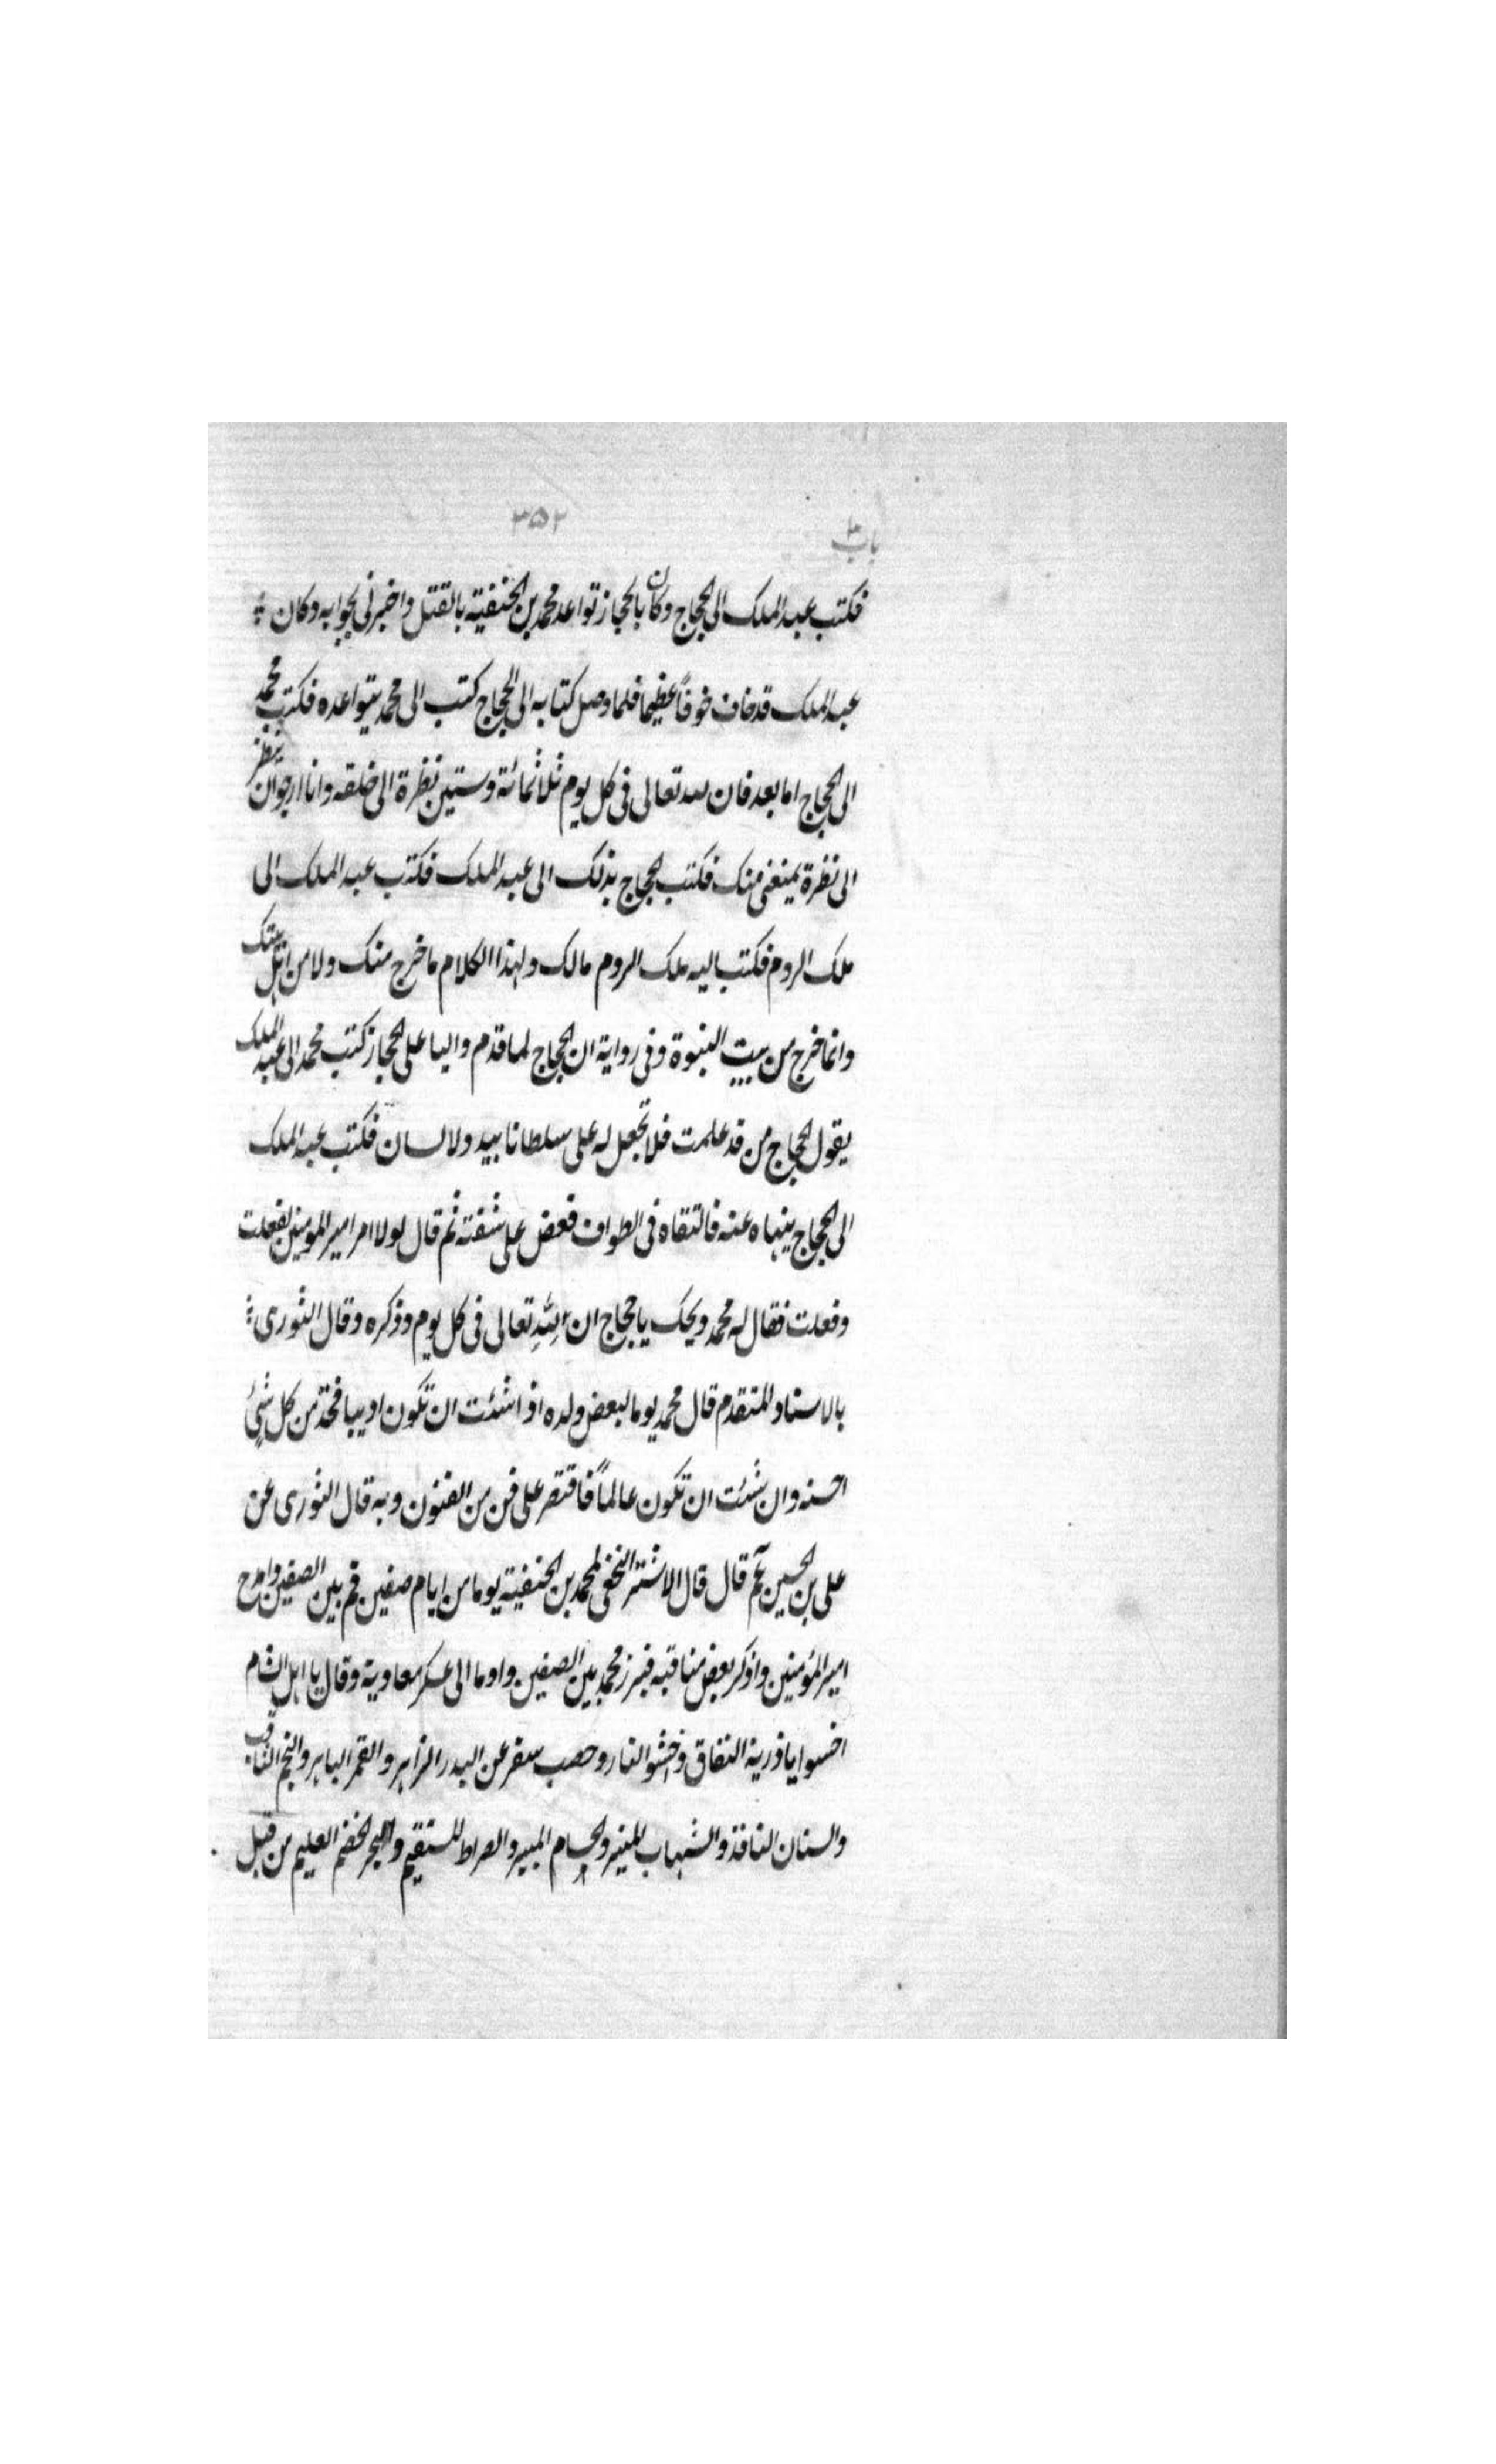 باب ٣
٣٥٢
فكتب عبد الملك الى الحجاج وكان بالحجاز تواعد محمد بن الحنفية بالقتل واخبرني بجوابه وكان
عبد الملك قد خاف خوفاً عظيما فلما وصل كتابه الى الحجاج كتب الى محمد يتواعده فكتب محمد
الى الحجاج اما بعد فان لله تعالى فى كل يوم ثلاثمائة وستين نظرة الى خلقه وانا ارجوان ينظر
الى نظرة يمنعنى منك فكتب الحجاج بذلك الى عبد الملك فكتب عبد الملك الى
ملك الروم فكتب اليه ملك الروم مالك ولهذا الكلام ما خرج منك ولا من اهل بيتك
وانما خرج من بيت النبوة وفى رواية ان الحجاج لما قدم واليا على الحجاز كتب محمد الى عبد الملك
يقول الحجاج من قد علمت فلا تجعل له على سلطانا بيد ولا لسان فكتب عبد الملك
الى الحجاج ينهاه عنه فالتقاه فى الطواف فعض على شفته ثم قال لولا امر امير المومنين لفعلت
وفعلت فقال له محمد ويحك يا حجاج ان لِلّهِ تعالى فى كل يوم وذكره وقال الثورى
بالاسناد المتقدم قال محمد يوما لبعض ولده اذا شئت ان تكون اديبا فخذ من كل شئ
احسنه وان شئت ان تكون عالماً فاقتصر على فن من الفنون وبه قال الثورى عن
على بن الحسين عم قال قال الاشتر النخعى لمحمد بن الحنفية يوما من ايام صفين قم بين الصفين وامدح
امير المؤمنين واذكر بعض مناقبه فبرز محمد بين الصفين واوما الى عسكر معاوية وقال يا اهل الشام
اخسوا يا ذرية النفاق وحشو النار وحصب سقر عن البدر الزاهر والقمر الباهر والنجم الثاقب
والسنان النافذ والشهاب المنير والحسام المبير والصراط المستقيم والبحر الخضم العليم من قبل